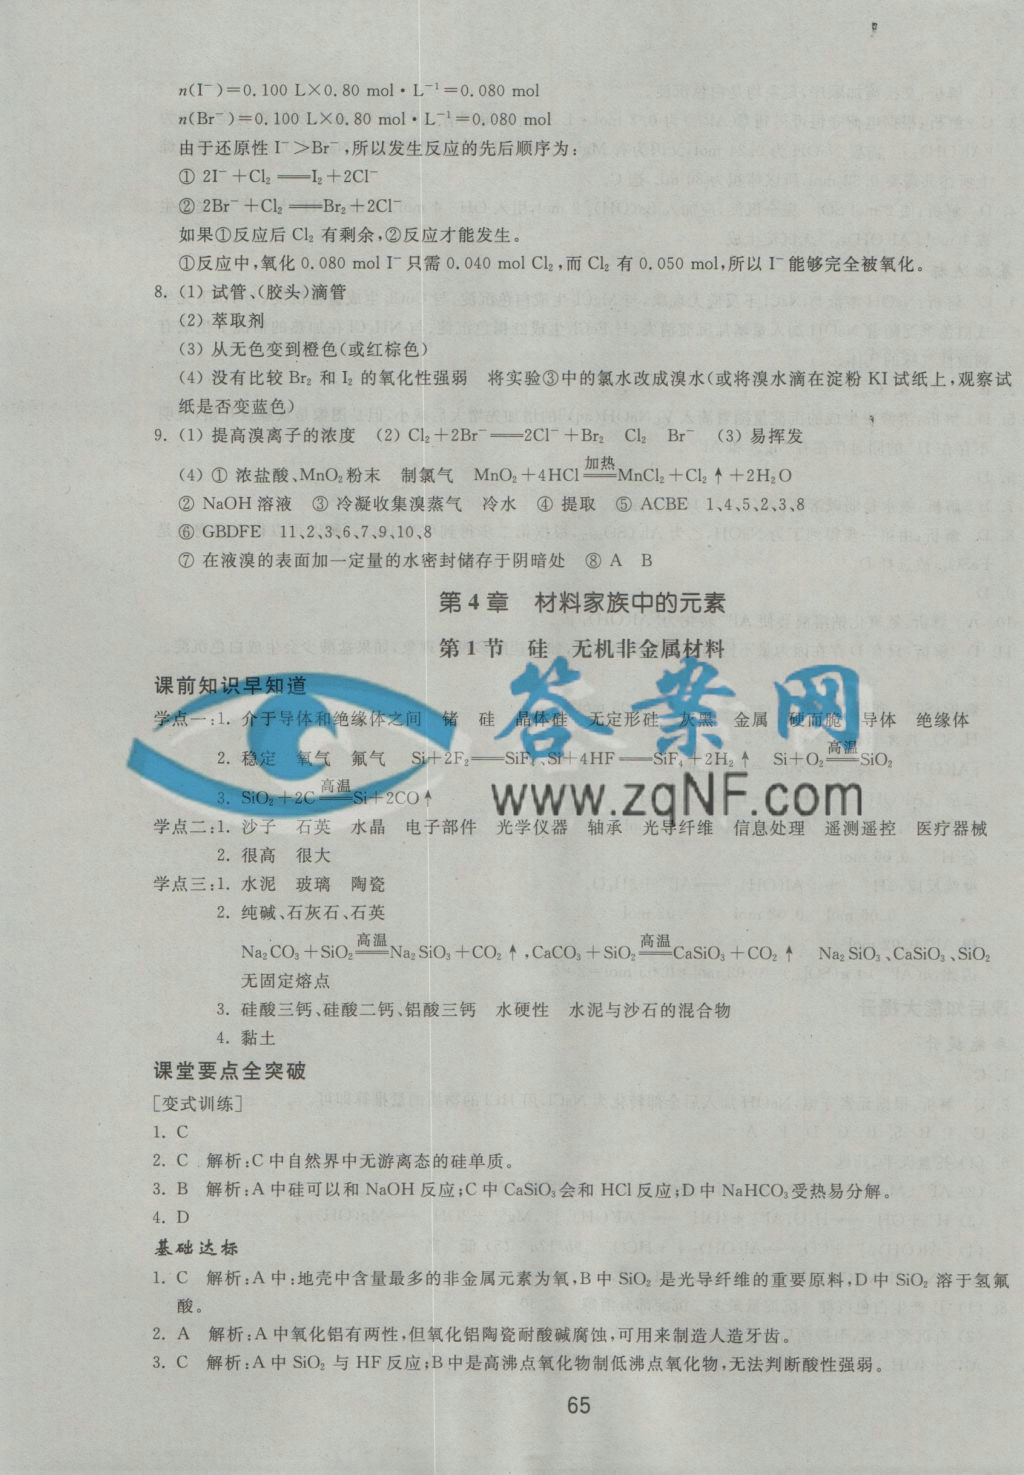 n(I⁻)=0.100 L×0.80 mol·L⁻¹=0.080 mol
n(Br⁻)=0.100 L×0.80 mol·L⁻¹=0.080 mol
由于还原性 I⁻>Br⁻,所以发生反应的先后顺序为:
① 2I⁻+Cl₂══I₂+2Cl⁻
② 2Br⁻+Cl₂══Br₂+2Cl⁻
如果①反应后 Cl₂ 有剩余,②反应才能发生。
①反应中,氧化 0.080 mol I⁻只需 0.040 mol Cl₂,而 Cl₂ 有 0.050 mol,所以 I⁻能够完全被氧化。
8. (1) 试管、(胶头)滴管
(2) 萃取剂
(3) 从无色变到橙色(或红棕色)
(4) 没有比较 Br₂ 和 I₂ 的氧化性强弱 将实验③中的氯水改成溴水(或将溴水滴在淀粉 KI 试纸上,观察试
纸是否变蓝色)
9. (1) 提高溴离子的浓度 (2) Cl₂+2Br⁻══2Cl⁻+Br₂ Cl₂ Br⁻ (3) 易挥发
(4) ① 浓盐酸、MnO₂粉末 制氯气 MnO₂+4HCl 加热══ MnCl₂+Cl₂↑+2H₂O
② NaOH 溶液 ③ 冷凝收集溴蒸气 冷水 ④ 提取 ⑤ ACBE 1、4、5、2、3、8
⑥ GBDFE 11、2、3、6、7、9、10、8
⑦ 在液溴的表面加一定量的水密封储存于阴暗处 ⑧ A B
第 4 章 材料家族中的元素
第 1 节 硅 无机非金属材料
课前知识早知道
学点一:1. 介于导体和绝缘体之间 锗 硅 晶体硅 无定形硅 灰黑 金属 硬而脆 导体 绝缘体
2. 稳定 氧气 氟气 Si+2F₂══SiF₄、Si+4HF══SiF₄+2H₂↑ Si+O₂ 高温══ SiO₂
3. SiO₂+2C 高温══ Si+2CO↑
答案网
www.zqNF.com
学点二:1. 沙子 石英 水晶 电子部件 光学仪器 轴承 光导纤维 信息处理 遥测遥控 医疗器械
2. 很高 很大
学点三:1. 水泥 玻璃 陶瓷
2. 纯碱、石灰石、石英
Na₂CO₃+SiO₂ 高温══ Na₂SiO₃+CO₂↑,CaCO₃+SiO₂ 高温══ CaSiO₃+CO₂↑ Na₂SiO₃、CaSiO₃、SiO₂
无固定熔点
3. 硅酸三钙、硅酸二钙、铝酸三钙 水硬性 水泥与沙石的混合物
4. 黏土
课堂要点全突破
[变式训练]
1. C
2. C 解析:C 中自然界中无游离态的硅单质。
3. B 解析:A 中硅可以和 NaOH 反应;C 中 CaSiO₃会和 HCl 反应;D 中 NaHCO₃受热易分解。
4. D
基础达标
1. C 解析:A 中:地壳中含量最多的非金属元素为氧,B 中 SiO₂ 是光导纤维的重要原料,D 中 SiO₂ 溶于氢氟
酸。
2. A 解析:A 中氧化铝有两性,但氧化铝陶瓷耐酸碱腐蚀,可用来制造人造牙齿。
3. C 解析:A 中 SiO₂ 与 HF 反应;B 中是高沸点氧化物制低沸点氧化物,无法判断酸性强弱。
65